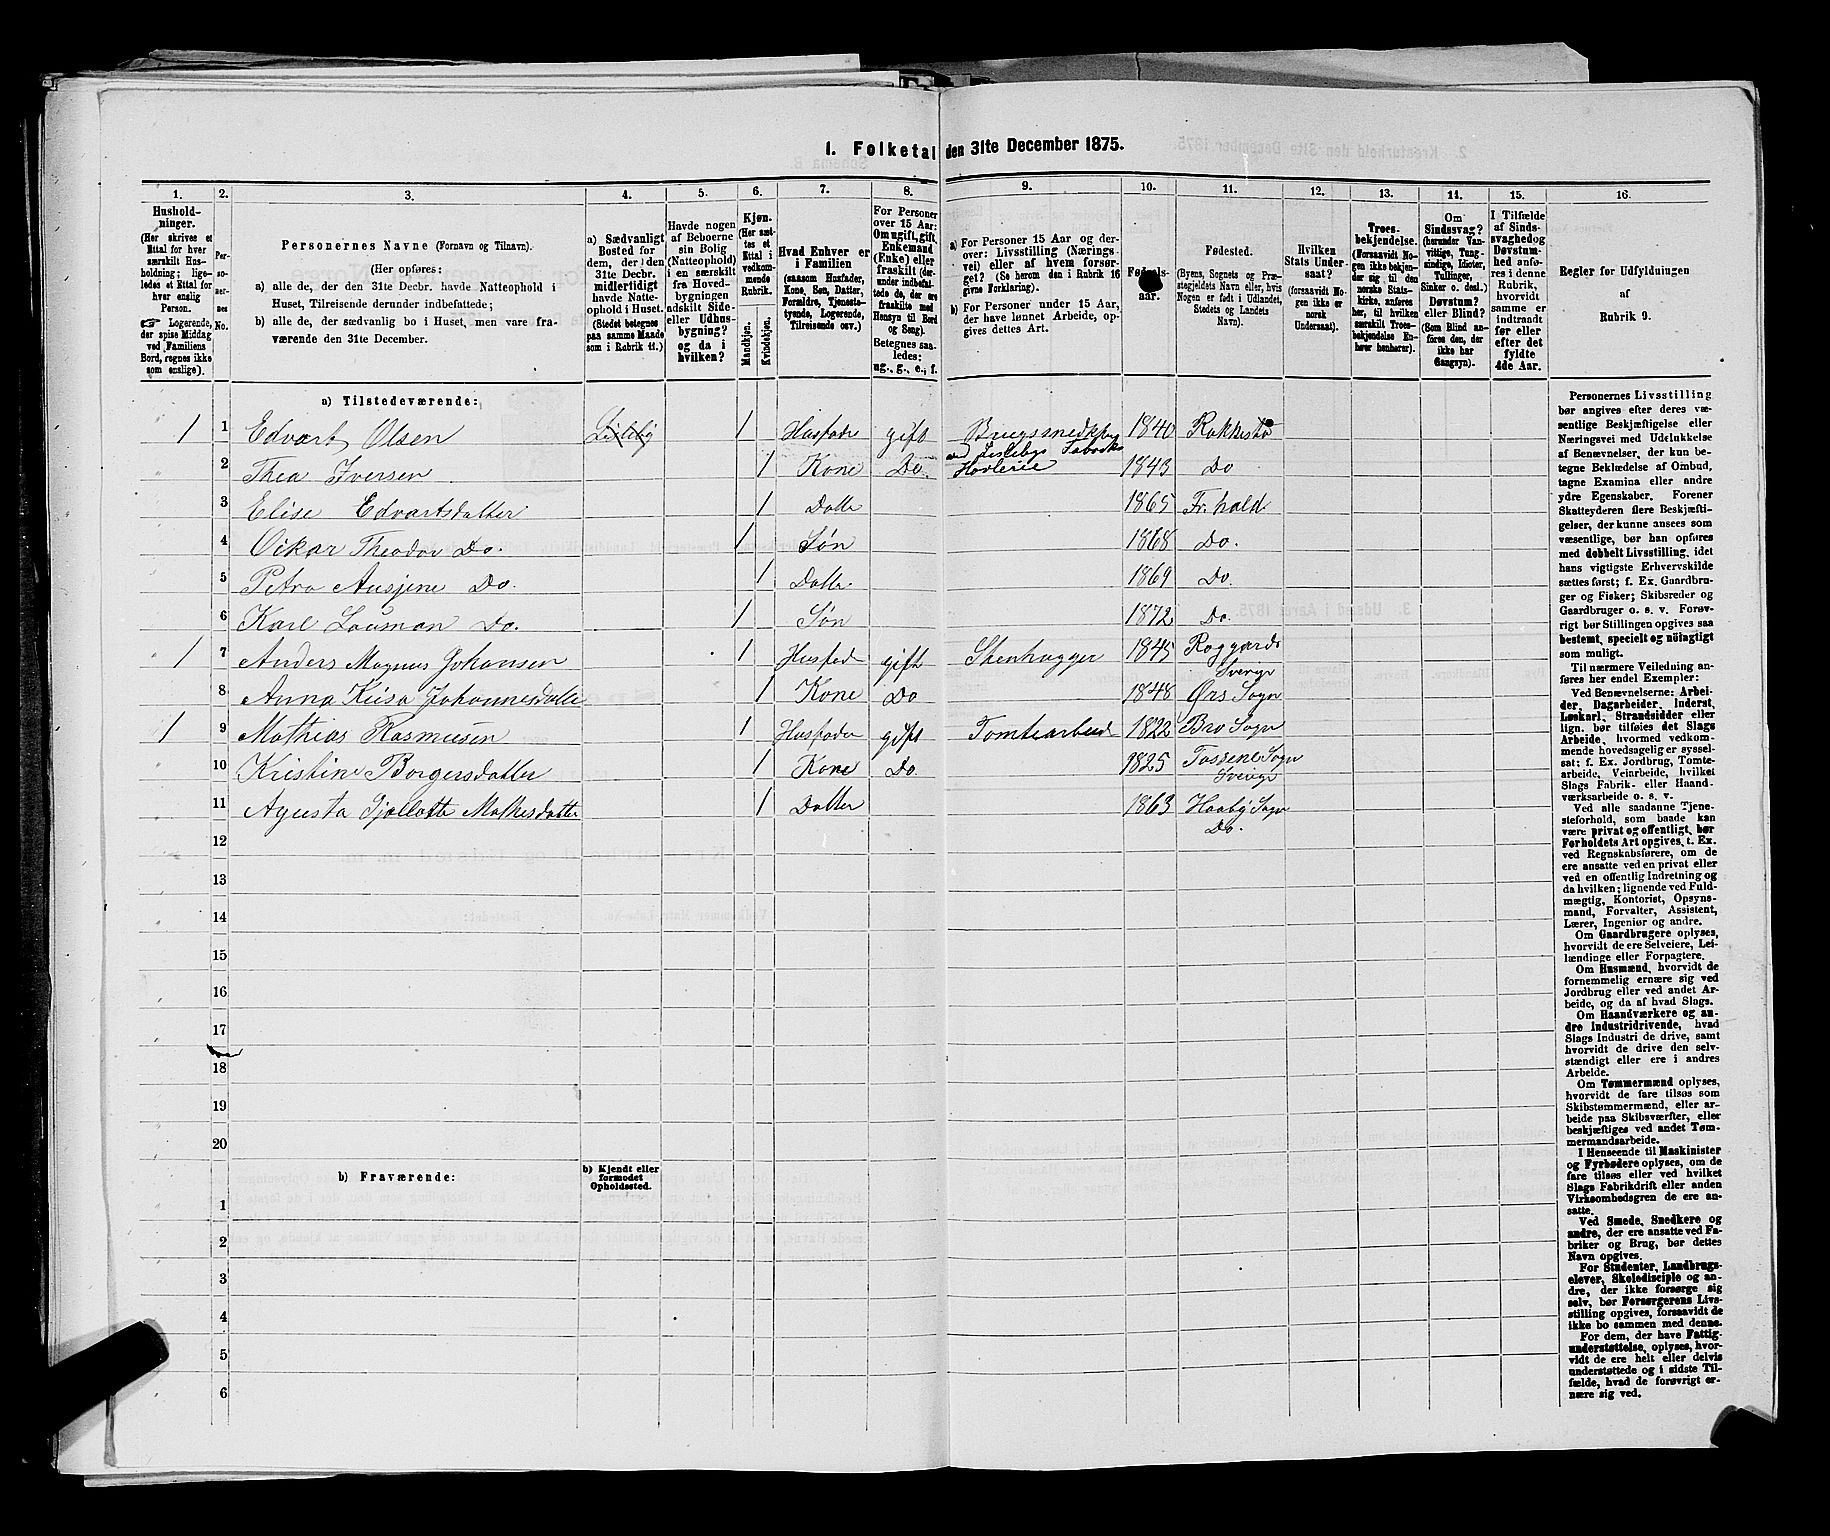 I. Folketal den 31te December 1875.
1. 2. 3. 4. 5. 6. 7. 8. 9. 10. 11. 12. 13. 14. 15. 16.
Hushold-
ninger.
(Her skrives et
Ettal for hver
særskilt Hus-
holdning; lige-
ledes et Ettal for
hver enslig
Person.
☞ Logerende,
der spise Middag
ved Familiens
Bord, regnes ikke
som enslige).
Per-
so-
ner-
nes
No.
Personernes Navne (Fornavn og Tilnavn).
(Her opføres:
a) alle de, der den 31te Decbr. havde Natteophold i
Huset, Tilreisende derunder indbefattede;
b) alle de, der sædvanlig bo i Huset, men vare fra-
værende den 31te December.
a) Sædvanligt
Bosted for
dem, der den
31te Decbr.
midlertidigt
havde Natte-
ophold i Huset.
(Stedet betegnes
paa samme Maade
som i Rubrik 11.)
Havde nogen
af Beboerne
sin Bolig
(Natteophold)
i en særskilt
fra Hoved-
bygningen
adskilt Side-
eller Udhus-
bygning?
og da i
hvilken?
Kjøn.
(Her sæt-
tes et
Ettal i
vedkom-
mende
Rubrik.
Mandkjøn.
Kvindekjøn.
Hvad Enhver er
i Familien
(saasom Husfader,
Kone, Søn, Datter,
Forældre, Tjeneste-
tyende, Logerende,
Tilreisende osv.)
For Personer
over 15 Aar:
Om ugift, gift,
Enkemand
(Enke) eller
fraskilt (der-
under indbefat-
tede de, der ere
fraskilte med
Hensyn til Bord
og Seng).
Betegnes saa-
ledes:
ug., g., e., f.
a) For Personer 15 Aar og der-
over: Livsstilling (Nærings-
vei) eller af hvem forsør-
get? (Se herom den i Rubrik 16
givne Forklaring).
b) For Personer under 15 Aar,
der have lønnet Arbeide, op-
gives dettes Art.
aar.
Fødested.
(Byens, Sognets og Præ-
stegjeldets Navn eller, hvis
Nogen er født i Udlandet,
Stedets og Landets
Navn).
Hvilken
Stats Under-
saat?
(forsaavidt No-
gen ikke er
norsk
Undersaat).
Troes-
bekjendelse.
(Forsaavidt No-
gen ikke bekjen-
der sig til den
norske Stats-
kirke, anføres
her, til hvilken
særskilt Troes-
bekjendelse En-
hver henhører).
Om
Sindssvag?
(herunder Van-
vittige, Tung-
sindige, Idioter,
Tullinger,
Sinker o. desl.)
Døvstum?
eller Blind?
(Som Blind an-
føres den, der
ikke har
Gangsyn).
I Tilfælde
af Sinds-
svaghed og
Døvstum-
hed anfø-
res i denne
Rubrik,
hvorvidt
samme er
indtraadt
før eller
efter det
fyldte
4de Aar.
Regler for Udfyldningen
af
Rubrik 9.
a) Tilstedeværende:
1 1 Edvart Olsen Lisleby 1 Husfader gift 1840 Rakkestad
ved Lislebys Fabrik
2 Thea Iversen 1 Kone Do. Høvlerie 1843 Do
3 Elise Edvartsdatter 1 Datte 1865 Fr.hald
4 Oskar Theodor Do. 1 Søn 1868 Do.
5 Petra Do. 1 Datte. 1869 Do.
6 Karl Do. 1 Søn 1872 Do.
1 7 Anders Magnus Johansen 1 Husfad gift Stenhugger 1845
Sverige
8 Anna Kaisa Johannesdatte 1 Kone Do 1848 Ørs Sogn
1 9 Mathias Rasmusen 1 Husfader gift Tomtearbeide 1822 Bro Sogn
10 Kristine Borgersdatter 1 Kone Do. 1825 Tossene Sogn
Sverige
11 Agusta Sjallotte Mathisdatter 1 Datter 1863 Haaby Sogn
Do.
12
13
14
15
16
17
18
19
20
b) Fraværende:
b) Kjendt eller
formodet
Opholdssted.
1
2
3
4
5
6
Personernes Livsstilling
bør angives efter deres væ-
sentlige Beskjæftigelse eller
Næringsvei med Udelukkelse
af Benævnelser, der kun be-
tegne Beklædelse af Ombud,
tagne Examina eller andre
ydre Egenskaber. Forener
Skatteyderen flere Beskjæfti-
gelser, der kunne ansees som
væsentlige, bør han opføres
med dobbelt Livsstilling, idet
hans vigtigste Erhvervskilde
sættes først; f. Ex. Gaardbru-
ger og Fisker; Skibsreder og
Gaardbruger o. s. v. Forøv-
rigt bør Stillingen opgives saa
bestemt, specielt og nøiagtigt
som muligt.
Til nærmere Veiledning an-
føres her endel Exempler:
Ved Benævnelserne: Arbei-
der, Dagarbeider, Inderst,
Løskarl, Strandsidder eller
lign. bør tilføies det Slags
Arbeide, hvormed vedkom-
mende hovedsagelig er syssel-
sat; f. Ex. Jordbrug, Tomte-
arbeide, Veiarbeide, hvilket
Slags Fabrik- eller Haand-
værksarbeide o. s. v.
Ved alle saadanne Tjene-
steforhold, som baade kan
være privat og offentligt, bør
Forholdets Art opgives, t. Ex.
ved Regnskabsførere, om de
ere ansatte ved en privat eller
ved en offentlig Indretning og
da hvilken; lignende ved Fuld-
mægtig, Kontorist, Opsyns-
mand, Forvalter, Assistent,
Lærer, Ingeniør og andre.
Om Gaardbrugere oplyses,
hvorvidt de ere Selveiere, Lei-
lændinge eller Forpagtere.
Om Husmænd, hvorvidt de
fornemmelig ernære sig ved
Jordbrug eller ved andet Ar-
beide, og da af hvad Slags.
Om Haandværkere og an-
dre Industridrivende, hvad
Slags Industri de drive, samt
hvorvidt de drive den selv-
stændigt eller ere i andres
Arbeide.
Om Tømmermænd oplyses,
hvorvidt de fare tilsøs som
Skibstømmermænd, eller ar-
beide paa Skibsværfter, eller
beskjæftiges ved andet Tøm-
mermandsarbeide.
I Henseende til Maskinister
og Fyrbødere oplyses, om de
fare tilsøs eller ved hvilket
Slags Fabrikdrift eller anden
Virksomhedsgren de ere an-
satte.
Ved Smede, Snedkere og
andre, der ere ansatte ved Fa-
briker og Brug, bør dettes
Navn opgives.
For Studenter, Landbrugs-
elever, Skoledisciple og an-
dre, der ikke forsørge sig
selv, bør Forsørgerens Livs-
stilling opgives, forsaavidt de
ikke bo sammen med denne.
For dem, der have Fattig-
understøttelse, oplyses, hvor-
vidt de ere helt eller delvis
understøttede og i sidste Til-
fælde, hvad de forøvrigt er-
nære sig ved.